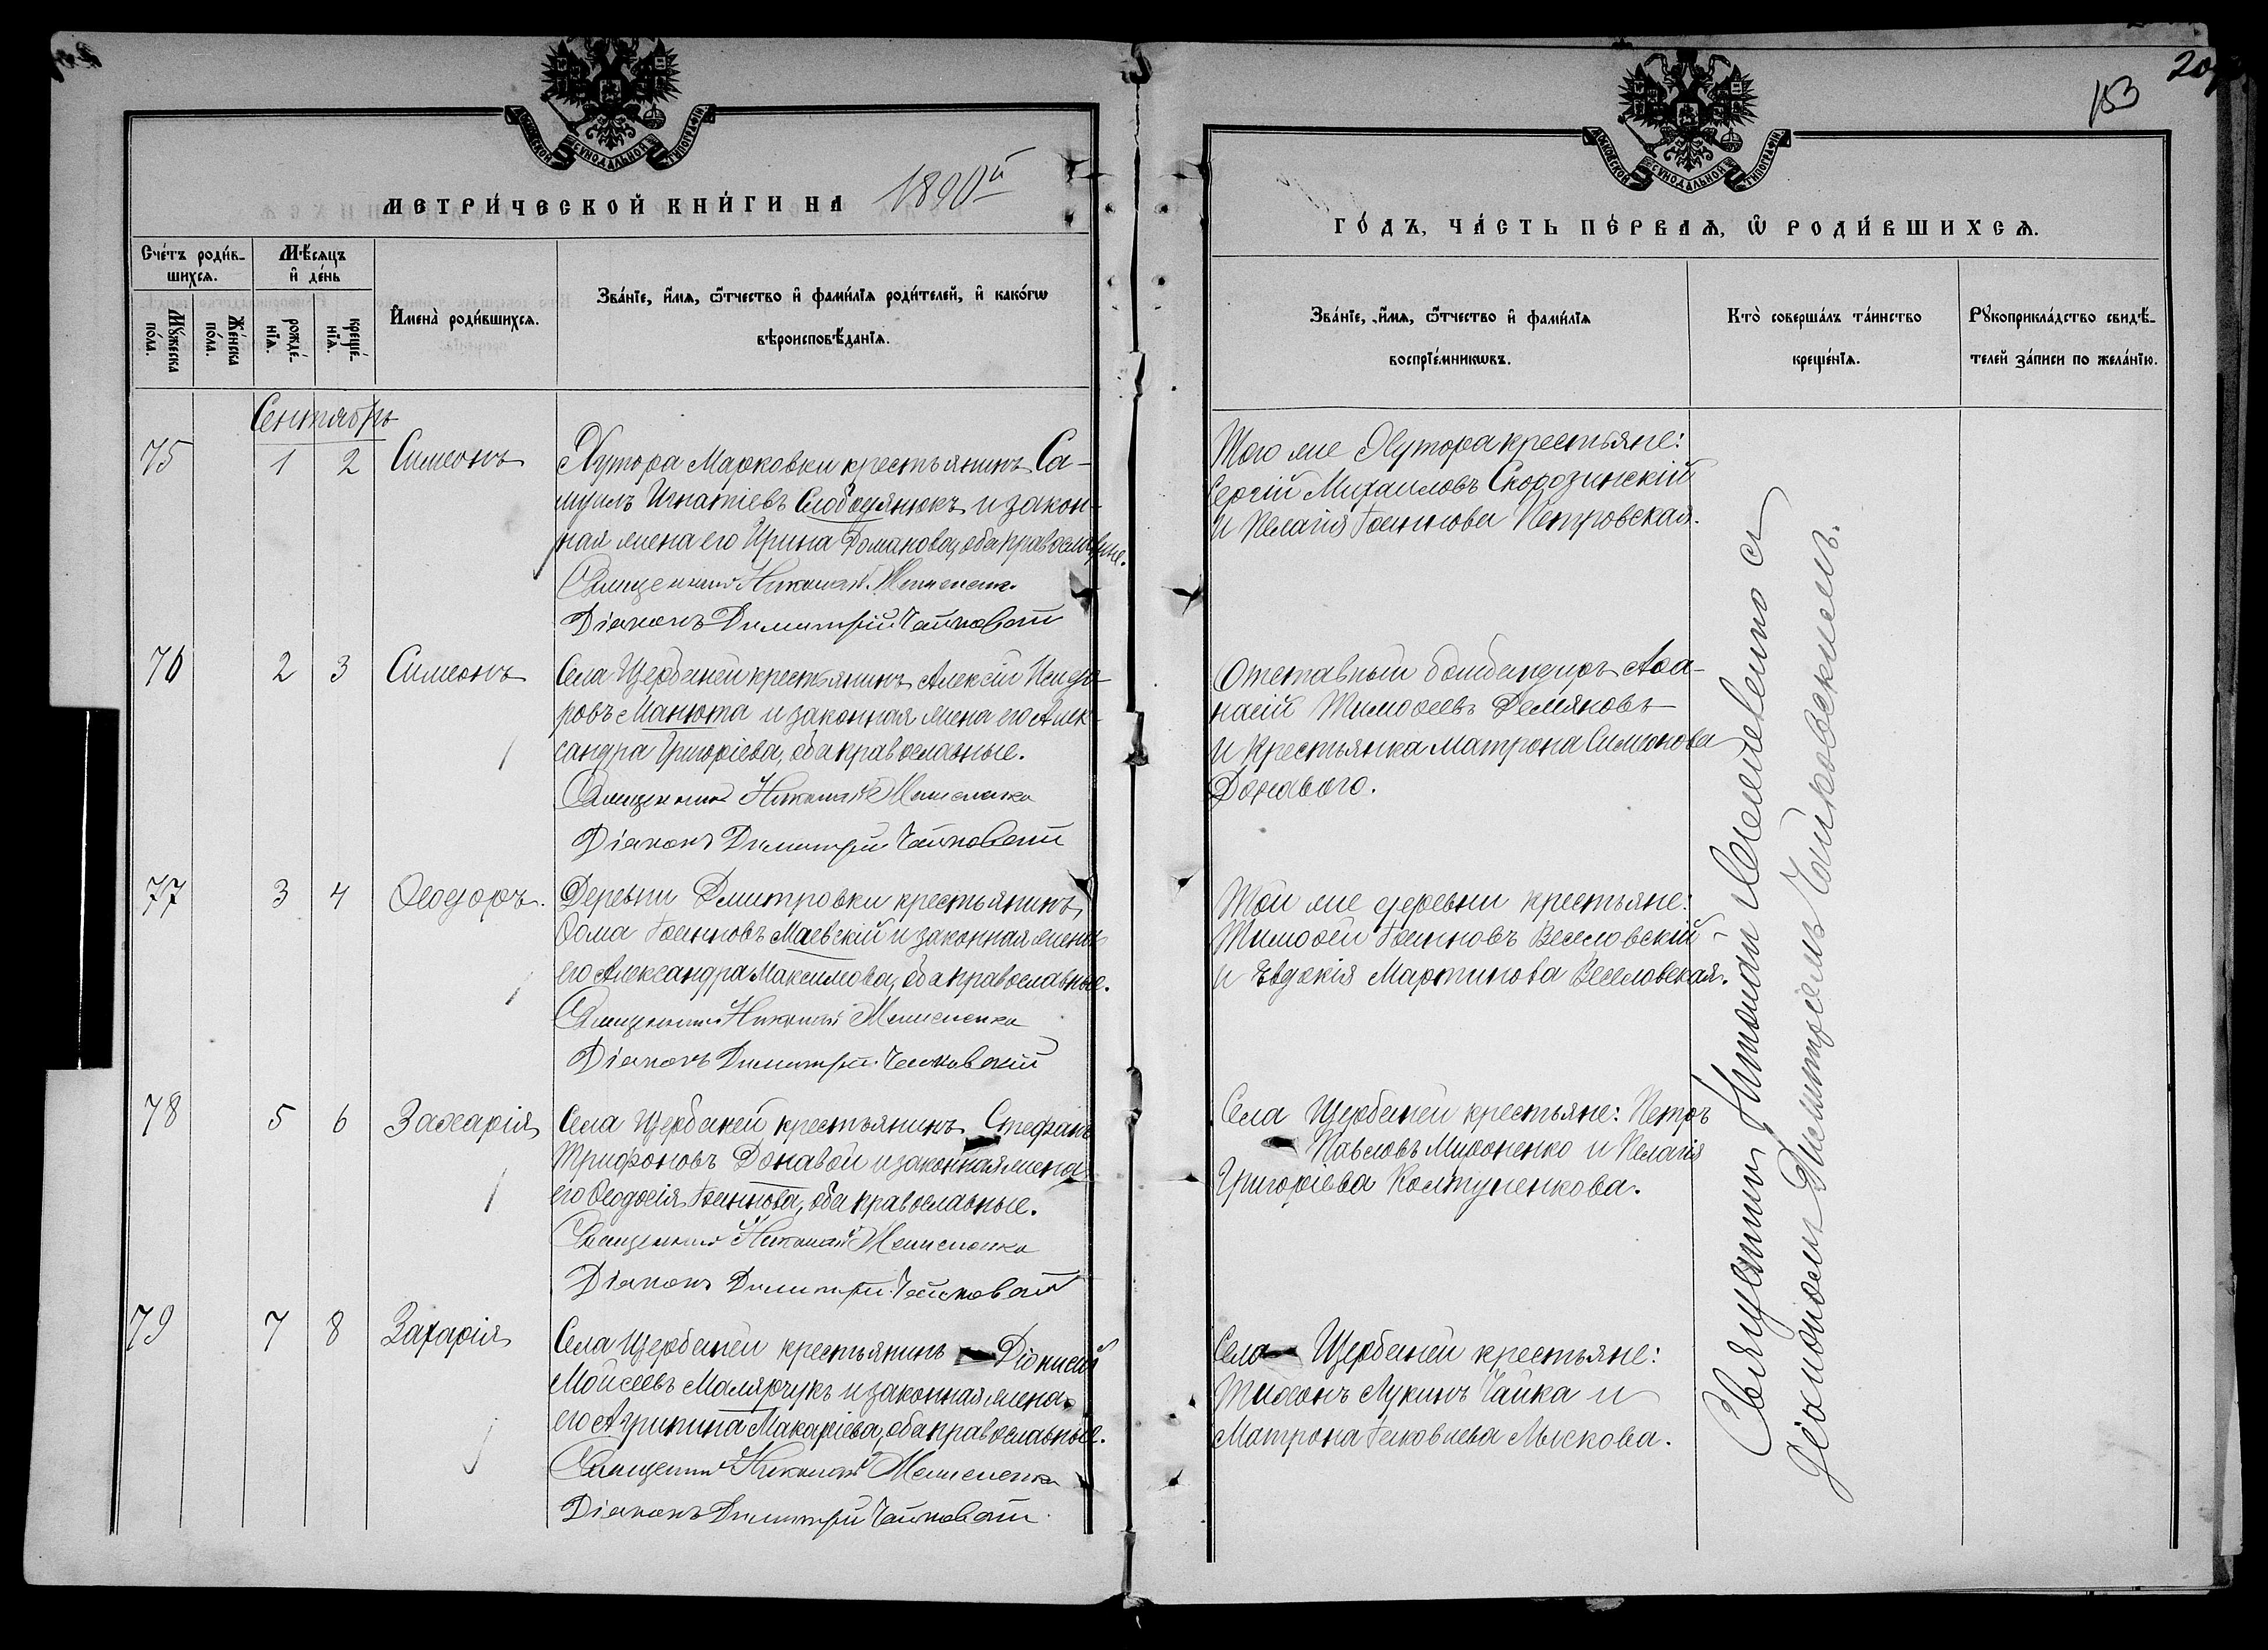 МОСКОВСКОЙ СѴНОДАЛЬНОЙ ТИПОГРАФІИ
МЕТРИ́ЧЕСКОЙ КНИ́ГИ НА 1890й
Сче́тъ роди́в-
шихся.
Мѣ́сяцъ
и҆ де́нь
Мꙋ́жеска
по́ла.
Же́нска
по́ла.
рожде́-
нїѧ.
креще́-
нїѧ.
И҆мена̀ роди́вшихсѧ.
Зва́нїе, и҆́мѧ, ѻ҆́тчество и҆ фами́лїѧ роди́телей, и҆ како́гѡ
вѣроисповѣ́данїѧ.
Сентябрь
75 1 2 Симеонъ
Хутора Марковки крестьянинъ Са-
муилъ Игнатіевъ Слободянюкъ и закон-
ная жена его Ирина Романова, оба православные.
Священникъ Николай
Діаконъ Димитрій Чайковскій
76 2 3 Симеонъ
Села Щербаней крестьянинъ Алексій Исидо-
ровъ Манюта и законная жена его Алек-
сандра Григоріева, оба православные.
Священникъ Николай
Діаконъ Димитрій Чайковскій
77 3 4 Ѳеодоръ.
Деревни Дмитровки крестьянинъ
Ѳома Іоанновъ Маевскій и законная жена
его Александра Максимова, оба православные.
Священникъ Николай
Діаконъ Димитрій Чайковскій
78 5 6 Захарія
Села Щербаней крестьянинъ Стефанъ
Трифоновъ Донавой и законная жена
его Ѳеодосія Іоаннова, оба православные.
Священникъ Николай
Діаконъ Димитрій Чайковскій
79 7 8 Захарія
Села Щербаней крестьянинъ Діонисій
Моисеевъ Малярчукъ и законная жена
его Агрипина Макаріева, оба православные.
Священникъ Николай
Діаконъ Димитрій Чайковскій
153
МОСКОВСКОЙ СѴНОДАЛЬНОЙ ТИПОГРАФІИ
ГО́ДЪ, ЧА́СТЬ ПЕ́РВАѦ, Ѡ҆ РОДИ́ВШИХСѦ.
Зва́нїе, и҆́мѧ, ѻ҆́тчество и҆ фами́лїѧ
воспрїе́мникѡвъ.
Кто̀ соверша́лъ та́инство
креще́нїѧ.
Рꙋкоприкла́дство свидѣ́-
телей за́писи по жела́нїю.
Того же Хутора крестьяне:
Сергій Михаиловъ Скорозинскій
и Пелагія Іоаннова Петровская.
Отставный бомбандиръ Аѳа-
насій Тимоѳеевъ Демяновъ
и крестьянка Матрона Симеонова
Донавого.
Той же деревни крестьяне:
Тимоѳей Іоанновъ Веселовскій
и Евдокія Мартинова Веселовская.
Села Щербаней крестьяне: Петръ
Павловъ Мироненко и Пелагія
Григоріева Колтуненкова.
Села Щербаней крестьяне:
Тихонъ Лукинъ Чайка и
Матрона Іаковлева Мыскова.
Священникъ Николай с
Діакономъ Димитріемъ Чайковскимъ.